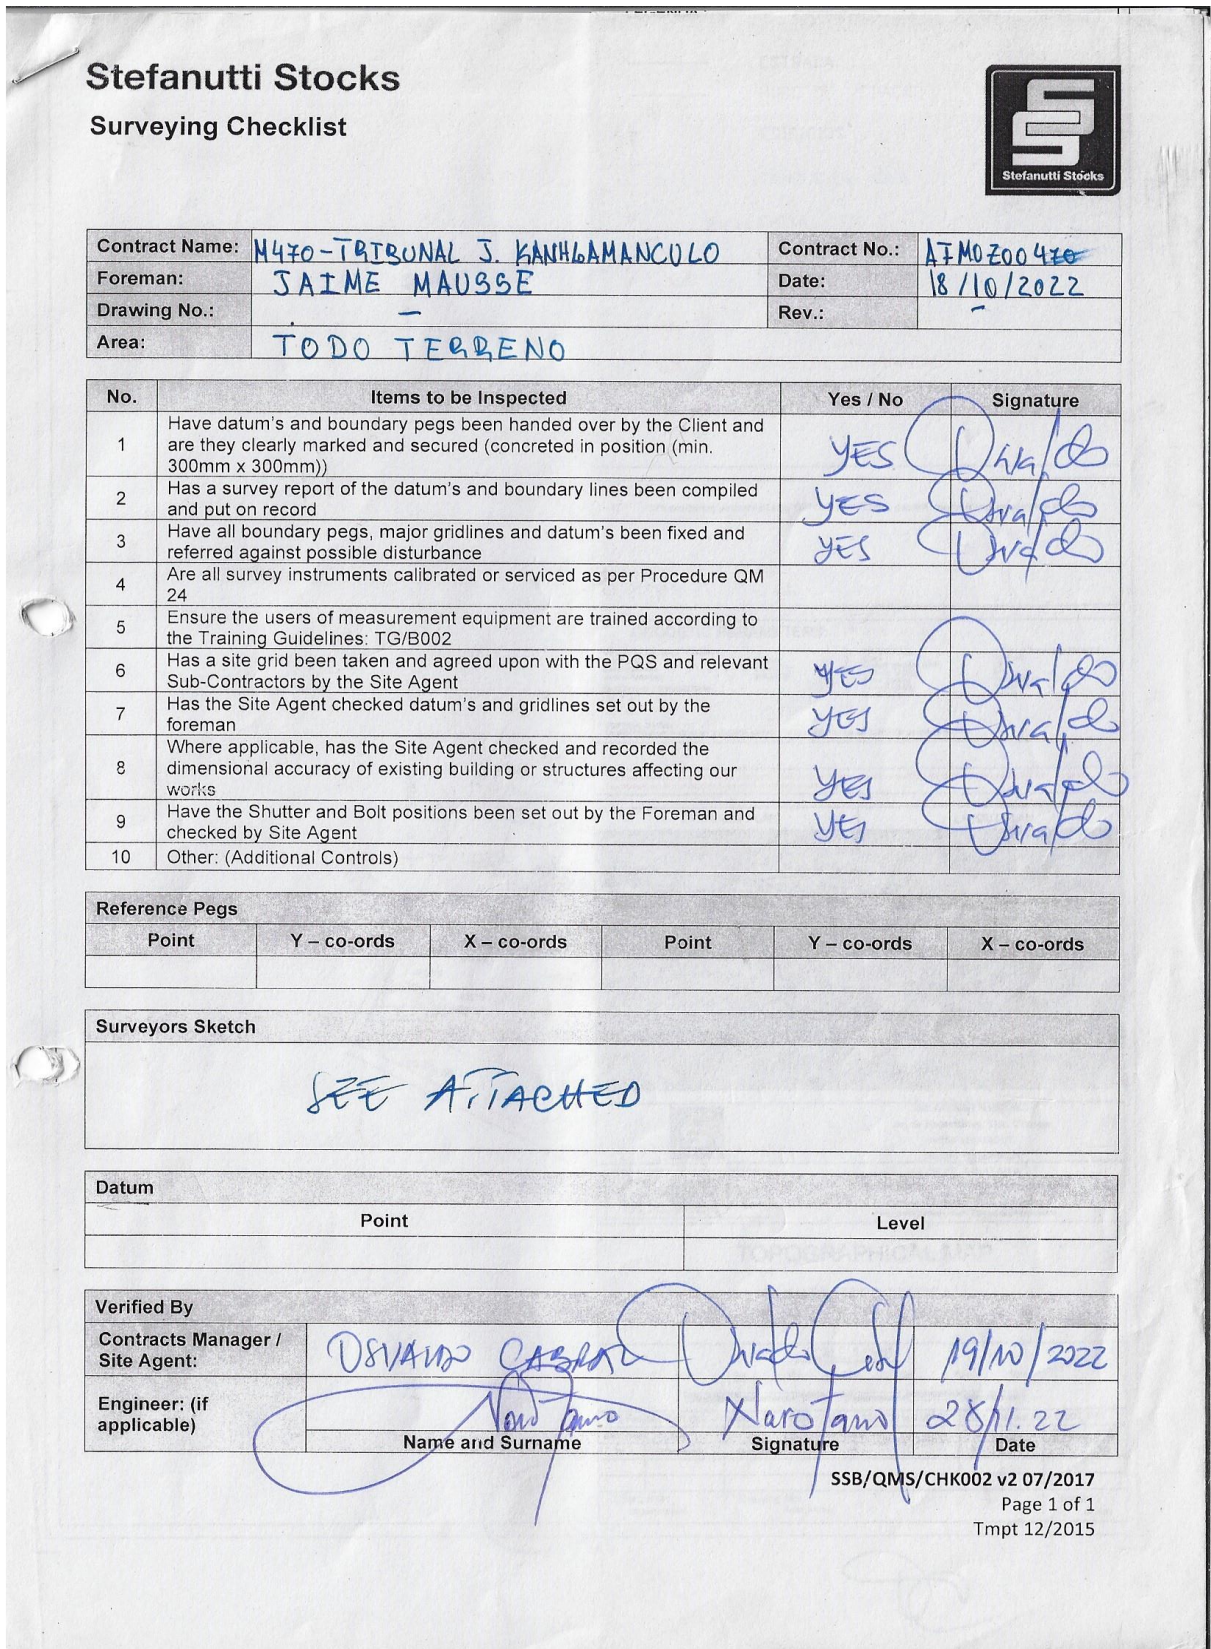 Stefanutti Stocks
Surveying Checklist
Stefanutti Stocks
Contract Name: M470-TRIBUNAL J. KANHLAMANCULO Contract No.: AFMOZ00470
Foreman: JAIME MAUSSE Date: 18/10/2022
Drawing No.: – Rev.: –
Area: TODO TERRENO
No. Items to be Inspected Yes / No Signature
1 Have datum's and boundary pegs been handed over by the Client and
are they clearly marked and secured (concreted in position (min.
300mm x 300mm)) YES Osvaldo
2 Has a survey report of the datum's and boundary lines been compiled
and put on record YES Osvaldo
3 Have all boundary pegs, major gridlines and datum's been fixed and
referred against possible disturbance YES Osvaldo
4 Are all survey instruments calibrated or serviced as per Procedure QM
24
5 Ensure the users of measurement equipment are trained according to
the Training Guidelines: TG/B002
6 Has a site grid been taken and agreed upon with the PQS and relevant
Sub-Contractors by the Site Agent YES Osvaldo
7 Has the Site Agent checked datum's and gridlines set out by the
foreman YES Osvaldo
8 Where applicable, has the Site Agent checked and recorded the
dimensional accuracy of existing building or structures affecting our
works YES Osvaldo
9 Have the Shutter and Bolt positions been set out by the Foreman and
checked by Site Agent YES Osvaldo
10 Other: (Additional Controls)
Reference Pegs
Point Y – co-ords X – co-ords Point Y – co-ords X – co-ords
Surveyors Sketch
SEE ATTACHED
Datum
Point Level
Verified By
Contracts Manager /
Site Agent: OSVALDO CABRAL 19/10/2022
Engineer: (if
applicable) 28/11.22
Name and Surname Signature Date
SSB/QMS/CHK002 v2 07/2017
Page 1 of 1
Tmpt 12/2015